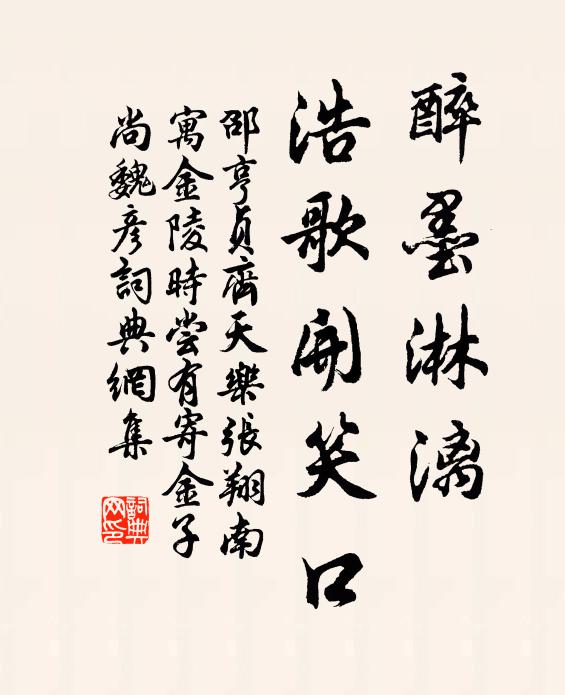 醉墨淋漓
浩歌開笑口
邵亨貞齊天樂張翔南
寓金陵時嘗有寄金子
尚魏彥詞典網集
詞典
网印